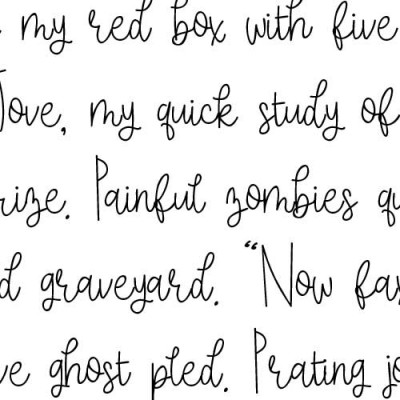 my red box with five
Jove, my quick study of
rize. Painful zombies qu
d graveyard. "Now fas
ve ghost pled. Prating jo